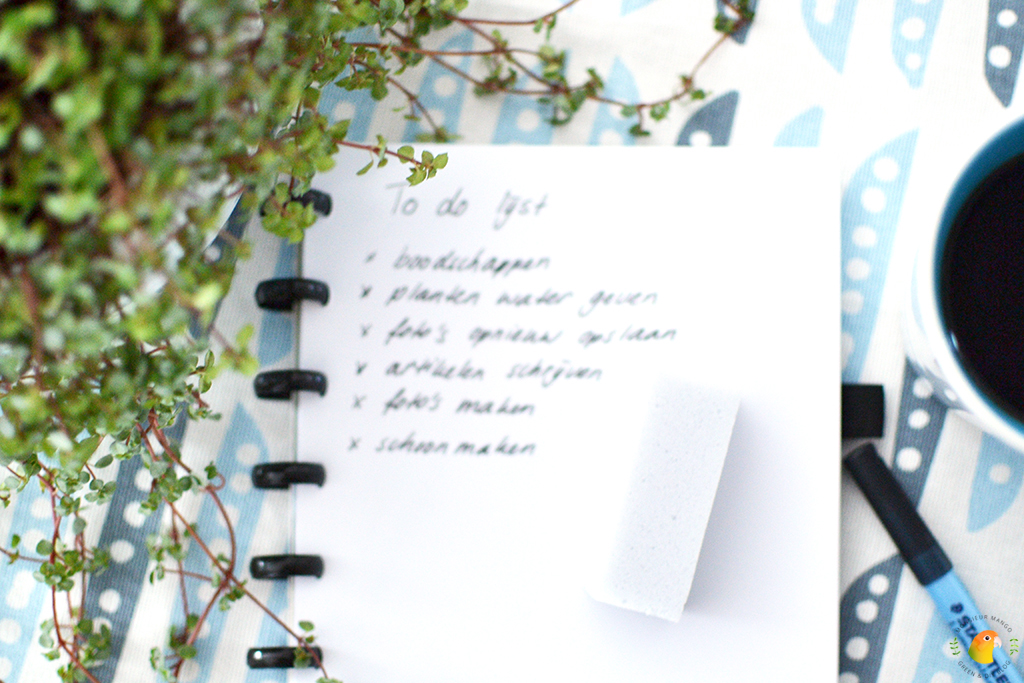 To do lijst
x boodschappen
x planten water geven
x foto's opnieuw opslaan
x artikelen schrijven
x foto's maken
x schoonmaken
STAEDTLER
MONSIEUR MANGO